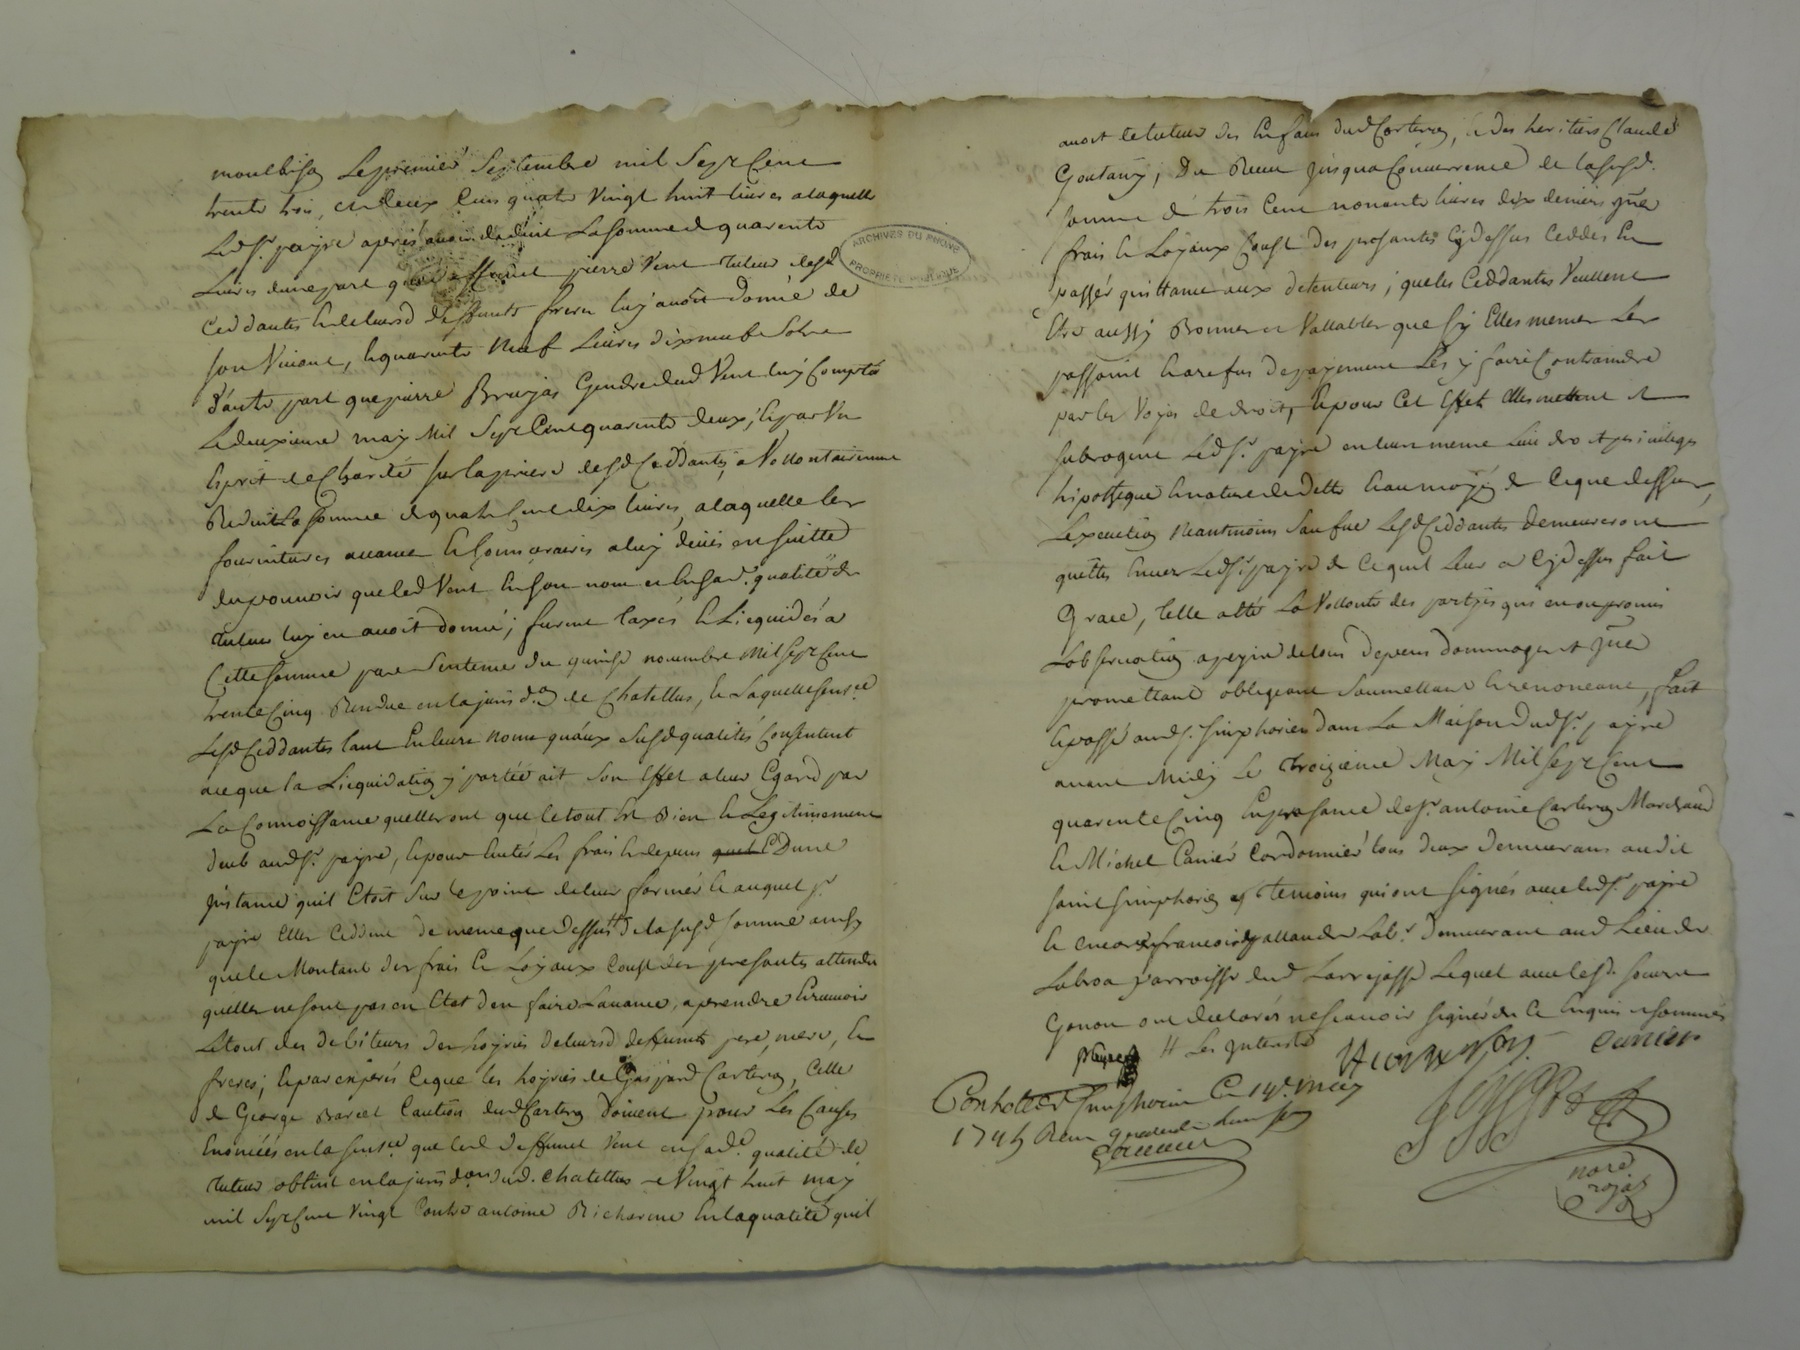 montbison Le premier Septembre mil Sept Cent
trente trois, en deux Cens quatre Vingt huit livres a laquelle
Led Sr. payre apres avoir deduit La Somme de quarente
Livres dune part que deffunct pierre Vent tuteur desd
Ceddantes et de leursd deffunts freres luy avoit Donné de
son Vivant, et quarente Neuf Livres dixneuf Sols
d'autre part que pierre Bruyas Gendre dud Vent luy Compta
Le deuxieme may Mil Sept Cent quarente deux, et par Un
Esprit de Charité sur la priere desd Ceddantes a Vollontairement
Reduit La Somme de quatre Cent dix livres, a laquelle les
fournitures avance et honnoraires a luy deües en suitte
du pouvoir que led Vent en son nom et en sad. qualité de
tuteur luy en avoit donné; furent taxés et Liequidés a
Cette somme par Sentence du quinse novembre Mil Sept Cent
trente Cinq Rendue en la jurisdon de Chatellus, et Laquelle Sentce
Lesd Ceddantes tant En leurs noms qu'aux Susd qualités Consentent
et que la Liequidation y portée ait Son Effet a leur Egard par
La Connoissance quelles ont que le tout Est Bien et Legitimement
deub aud Sr. payre, et pour Eviter Les frais et depens Dune
Jnstance quil Etoit Sur le point de leur former et auquel Sr
payre Elles Ceddent de meme que dessus H de la susd somme ainsy
que le Montant des frais et Loyaux Coust des presantes attendu
quelles ne sont pas en Etat den faire Lavance, a prendre et recevoir
Le tout des debiteurs des hoyries de leursd deffunts pere, mere, et
freres; et par exprés Ce que les hoyries de Gaspard Carteron, Celle
de George Barcel Caution dud Carteron Doivent pour Les Causes
Enoncées en la Sentce que led deffunct Vent en sade. qualité de
tuteur obtint en la jurisdon dud. Chatellus Le Vingt huit may
mil Sept Cent Vingt Contre antoine Richarme En la qualité quil
avoit de tuteur des Enfans dud Carteron, et des heritiers Claude
Goutany, Du Reveu Jusqua Concurrence de la susd.
somme de trois Cent nonante livres dix deniers
frais et Loyaux Coust des presantes Cydessus Ceddés En
passer quittance aux detenteurs, que les Ceddantes Veullent
Etre aussy Bonnes et Vallables que sy Elles memes Les
passoint et a refus de payement Les y faire Contraindre
par les Voyes de droit, et pour Cet Effet Elles mettent et
subrogent Led Sr. payre en leur meme Lieu droit privileges
hipotheque et nature de dette et au moyen de Ce que dessus,
Lexecution Neantmoins Sauf Lesd Ceddantes demeureront
quittes Envers Led Sr. payre de Ce quil Leur a Cydessus fait
Grace, telle etté La Vollonté des partyes qui en ont promis
Lobservation a peyne de tous Depens dommages et
promettant obligeant Soumettant et renonceant, fait
et passé aud St. Simphorien dans La Maison dud Sr. payre
avant Midy Le Troizieme May Mil Sept Cent
quarente Cinq En presance de Sr. antoine Carteron Marchand
et Michel Canier Cordonnier tous deux Demeurans audit
saint Simphorien temoins qui ont signés avec led Sr. payre
et encore francois Labr. Demeurant aud Lieu de
Labroa parroisse dud Larrajasse Lequel avec lesd. sœurs
Gonon ont declarés ne scavoir signer de Ce Enquis et sommés
payre H Les Jnterets Canier
Controllé a St Simphorien Ce 14e. may
1745 Recu quarente huit sols
nore
royal
ARCHIVES DU RHÔNE
PROPRIÉTÉ PUBLIQUE